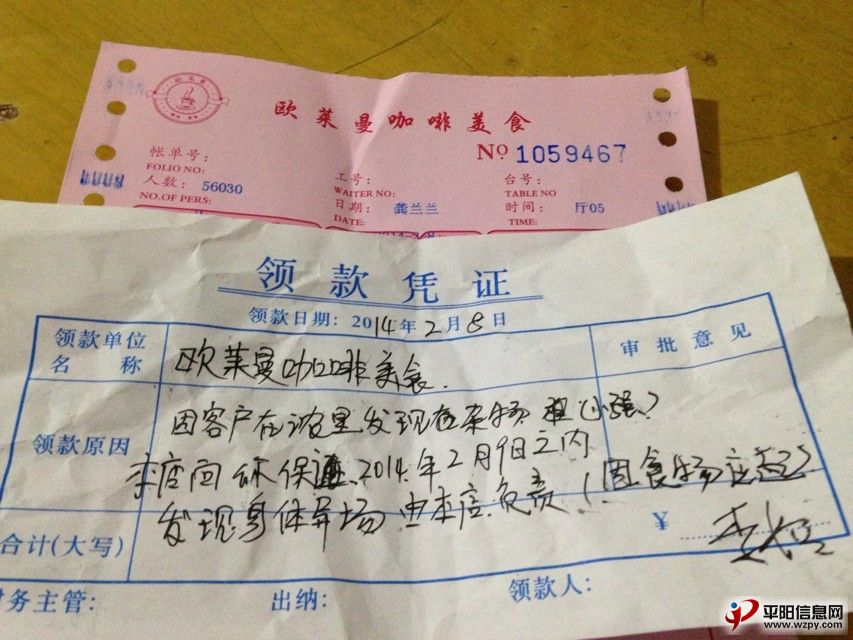 欧莱曼咖啡美食
No 1059467
帐单号: 工号: 台号:
FOLIO NO: WAITER NO: TABLE NO
人数: 56030 日期: 龚兰兰 时间: 厅05
NO.OF PERS: DATE: TIME:
领款凭证
领款日期: 2014年2月8日
领款单位名称 欧莱曼咖啡美食. 审批意见
领款原因 因客户在浓里发现在杂物
本店向 保证 2014.年2月9日之内
发现身体异场 由本店负责!(因食物
合计(大写) ¥
财务主管: 出纳: 领款人:
平阳信息网
www.wzpy.com